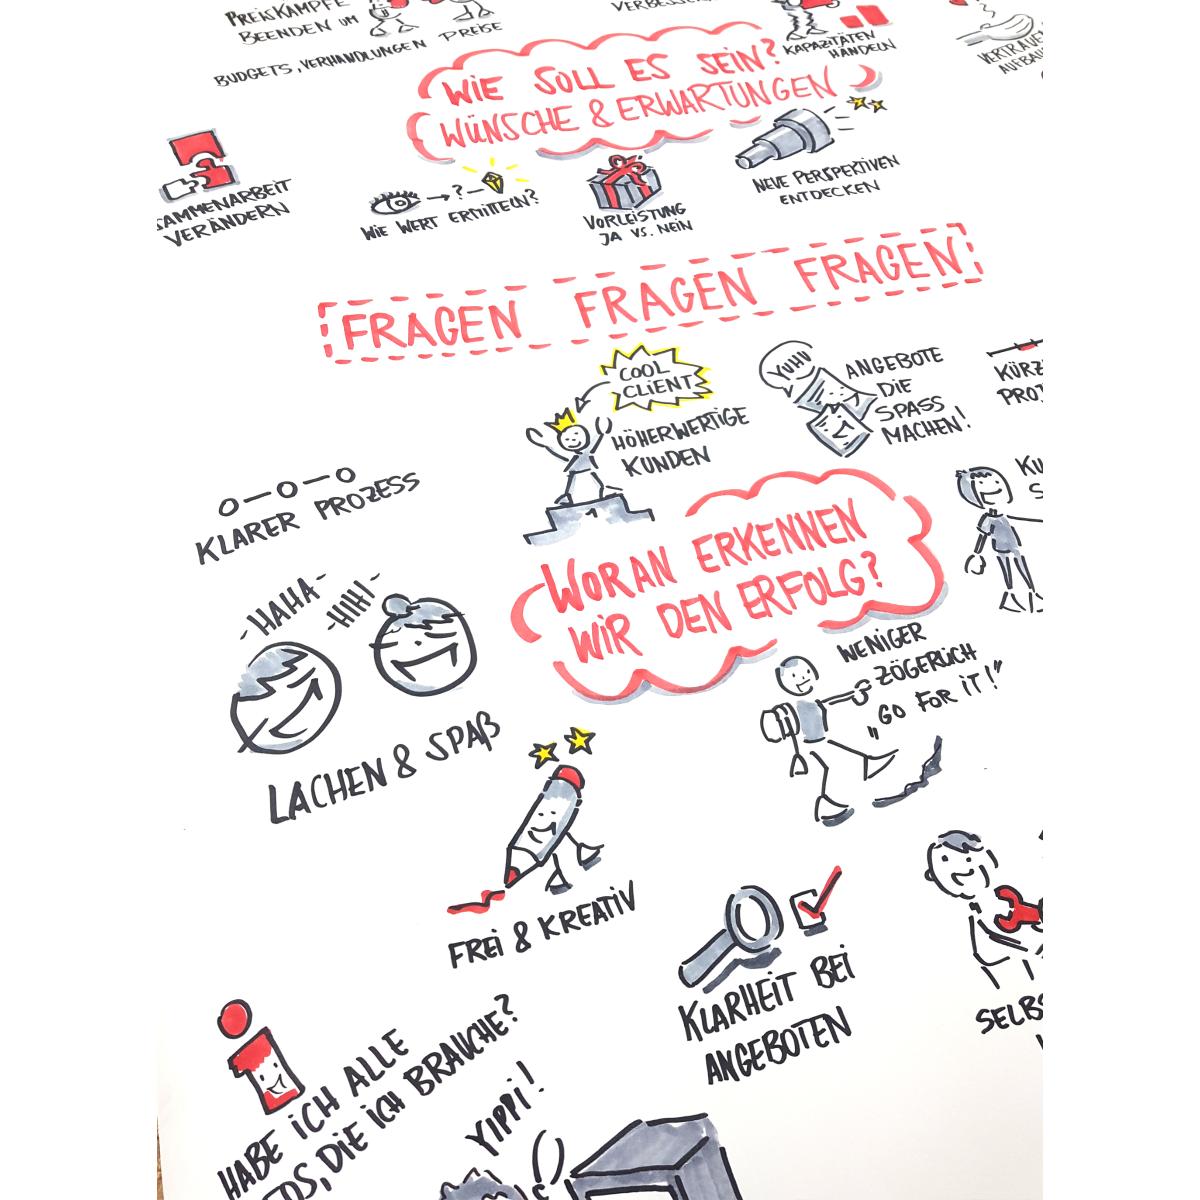 PREISKÄMPFE
BEENDEN UM
BUDGETS, VERHANDLUNGEN PREISE
KAPAZITÄTEN
HANDELN
WIE SOLL ES SEIN?
WÜNSCHE & ERWARTUNGEN
VERÄNDERN
WIE WERT ERMITTELN?
?
VORLEISTUNG
JA VS. NEIN
NEUE PERSPEKTIVEN
ENTDECKEN
FRAGEN FRAGEN FRAGEN
COOL
CLIENT
HÖHERWERTIGE
KUNDEN
1
YUHU
ANGEBOTE
DIE
SPASS
MACHEN!
KLARER PROZESS
WORAN ERKENNEN
WIR DEN ERFOLG?
-HAHA-
-HIHI-
LACHEN & SPAß
WENIGER
ZÖGERLICH
„GO FOR IT!"
FREI & KREATIV
KLARHEIT BEI
ANGEBOTEN
HABE ICH ALLE
DIE ICH BRAUCHE?
YIPPI!